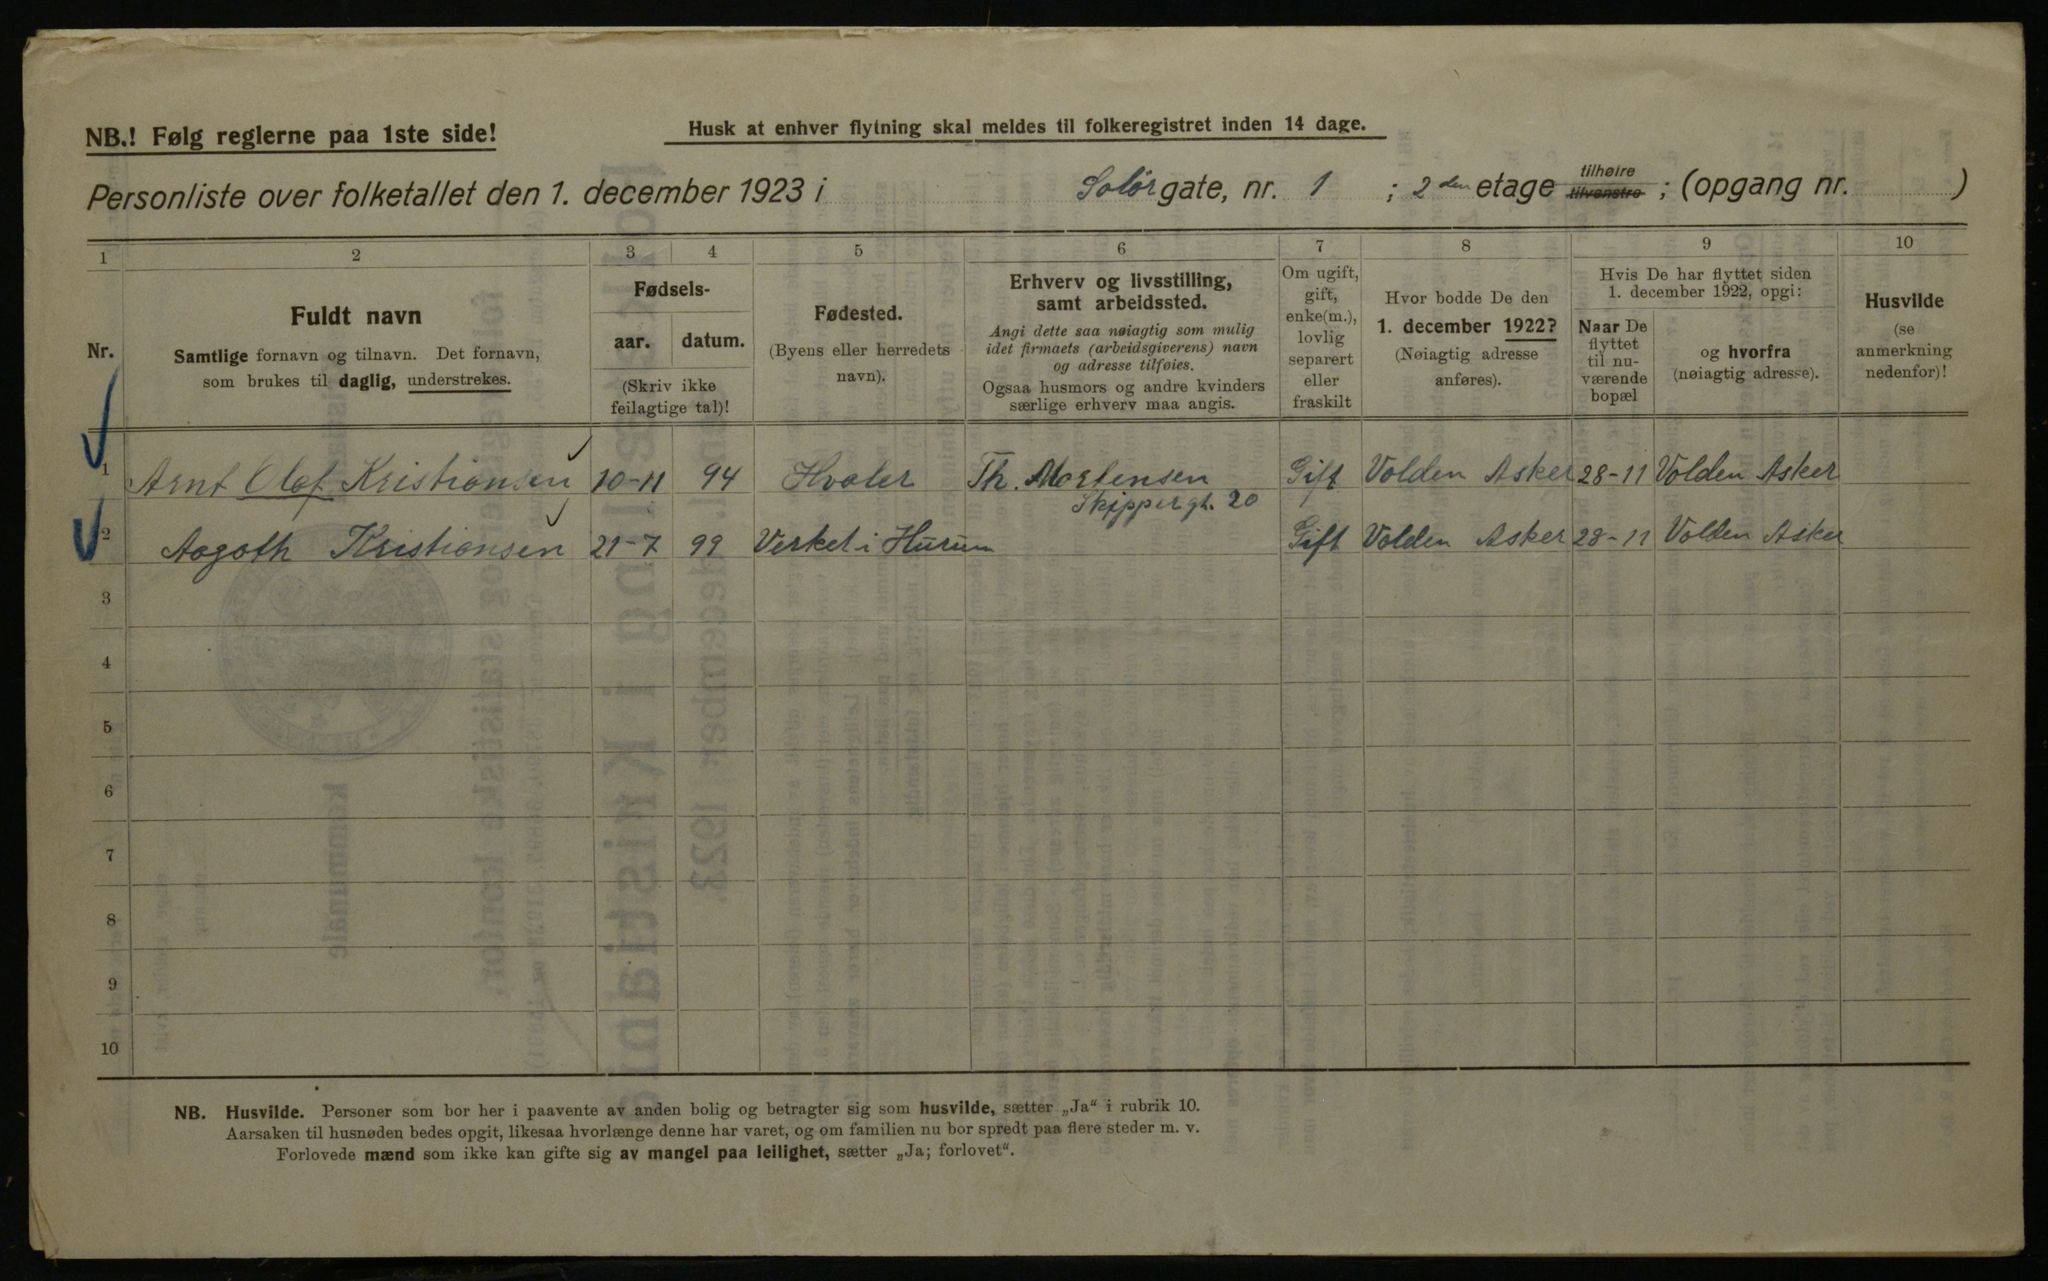 NB.! Følg reglerne paa 1ste side!
Husk at enhver flytning skal meldes til folkeregistret inden 14 dage.
Personliste over folketallet den 1. december 1923 i Solørgate, nr. 1 ; 2den etage tilhøire tilvenstre ; (opgang nr. )
1 2 3 4 5 6 7 8 9 10
Nr.
Fuldt navn
Samtlige fornavn og tilnavn. Det fornavn,
som brukes til daglig, understrekes.
Fødsels-
aar. datum.
(Skriv ikke
feilagtige tal)!
Fødested.
(Byens eller herredets
navn).
Erhverv og livsstilling,
samt arbeidssted.
Angi dette saa nøiagtig som mulig
idet firmaets (arbeidsgiverens) navn
og adresse tilføies.
Ogsaa husmors og andre kvinders
særlige erhverv maa angis.
Om ugift,
gift,
enke(m.),
lovlig
separert
eller
fraskilt
Hvor bodde De den
1. december 1922?
(Nøiagtig adresse
anføres).
Hvis De har flyttet siden
1. december 1922, opgi:
Naar De
flyttet
til nu-
værende
bopæl
og hvorfra
(nøiagtig adresse).
Husvilde
(se
anmerkning
nedenfor)!
1 Arnt Olaf Kristiansen 10-11 94 Hvaler Th. Mortensen Gift Volden Asker 28-11 Volden Asker
Skippergt. 20
2 Aagoth Kristiansen 21-7 99 Verket i Hurum Gift Volden Asker 28-11 Volden Asker
3
4
5
6
7
8
9
10
NB. Husvilde. Personer som bor her i paavente av anden bolig og betragter sig som husvilde, sætter „Ja“ i rubrik 10.
Aarsaken til husnøden bedes opgit, likesaa hvorlænge denne har varet, og om familien nu bor spredt paa flere steder m. v.
Forlovede mænd som ikke kan gifte sig av mangel paa leilighet, sætter „Ja; forlovet“.